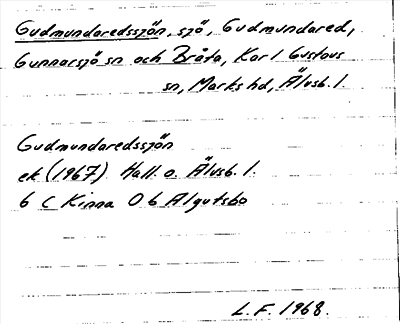 Gudmundaredssjön, sjö, Gudmundared,
Gunnarsjö sn och Bråta, Karl Gustavs
sn, Marks hd, Älvsb. l.
Gudmundaredssjön
ek (1967) Hall. o. Älvsb. l.
6 C Kinna 0 b Algutsbo
L. F. 1968.